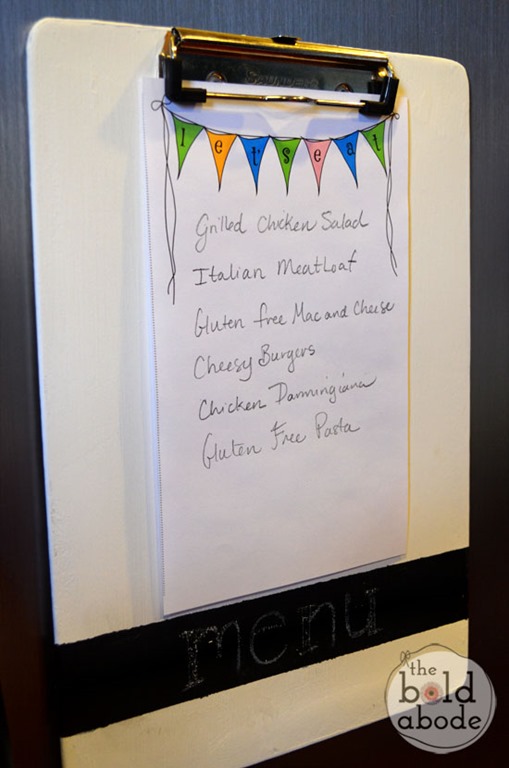 SAUNDERS
let's eat
Grilled Chicken Salad
Italian MeatLoaf
Gluten free Mac and Cheese
Cheesy Burgers
Chicken Darmingiana
Gluten Free Pasta
menu
the
bold
abode